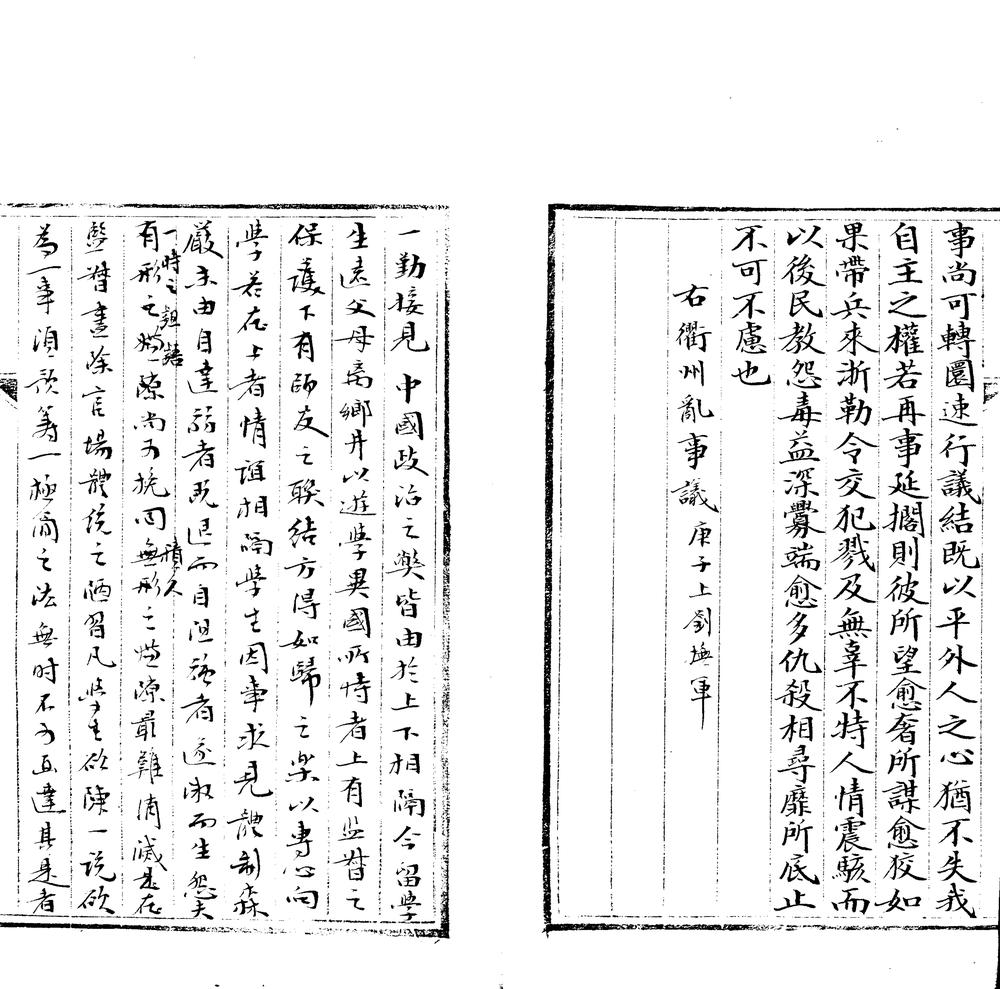 事尚可轉圜速行議結既以平外人之心猶不失我
自主之權若再事延擱則彼所望愈奢所謀愈狡如
果帶兵來浙勒令交犯戮及無辜不特人情震駭而
以後民教怨毒益深釁端愈多仇殺相尋靡所底止
不可不慮也
右衢州亂事議庚子上劉撫軍
一勤接見 中國政治之弊皆由於上下相隔今留學
生遠父母離鄉井以遊學異國所恃者上有監督之
保護下有師友之聯結方得如歸之樂以專心向
學若在上者情誼相隔學生因事求見體制森
嚴未由自達弱者既退而自沮強者遂激而生怨夫
一時之齟齬
有形之嫌隙尚可挽回無形之嫌隙最難消滅是在
積久
監督盡除官場體統之陋習凡學生欲陳一說欲
為一事須預籌一極簡之法無時不可直達其是者